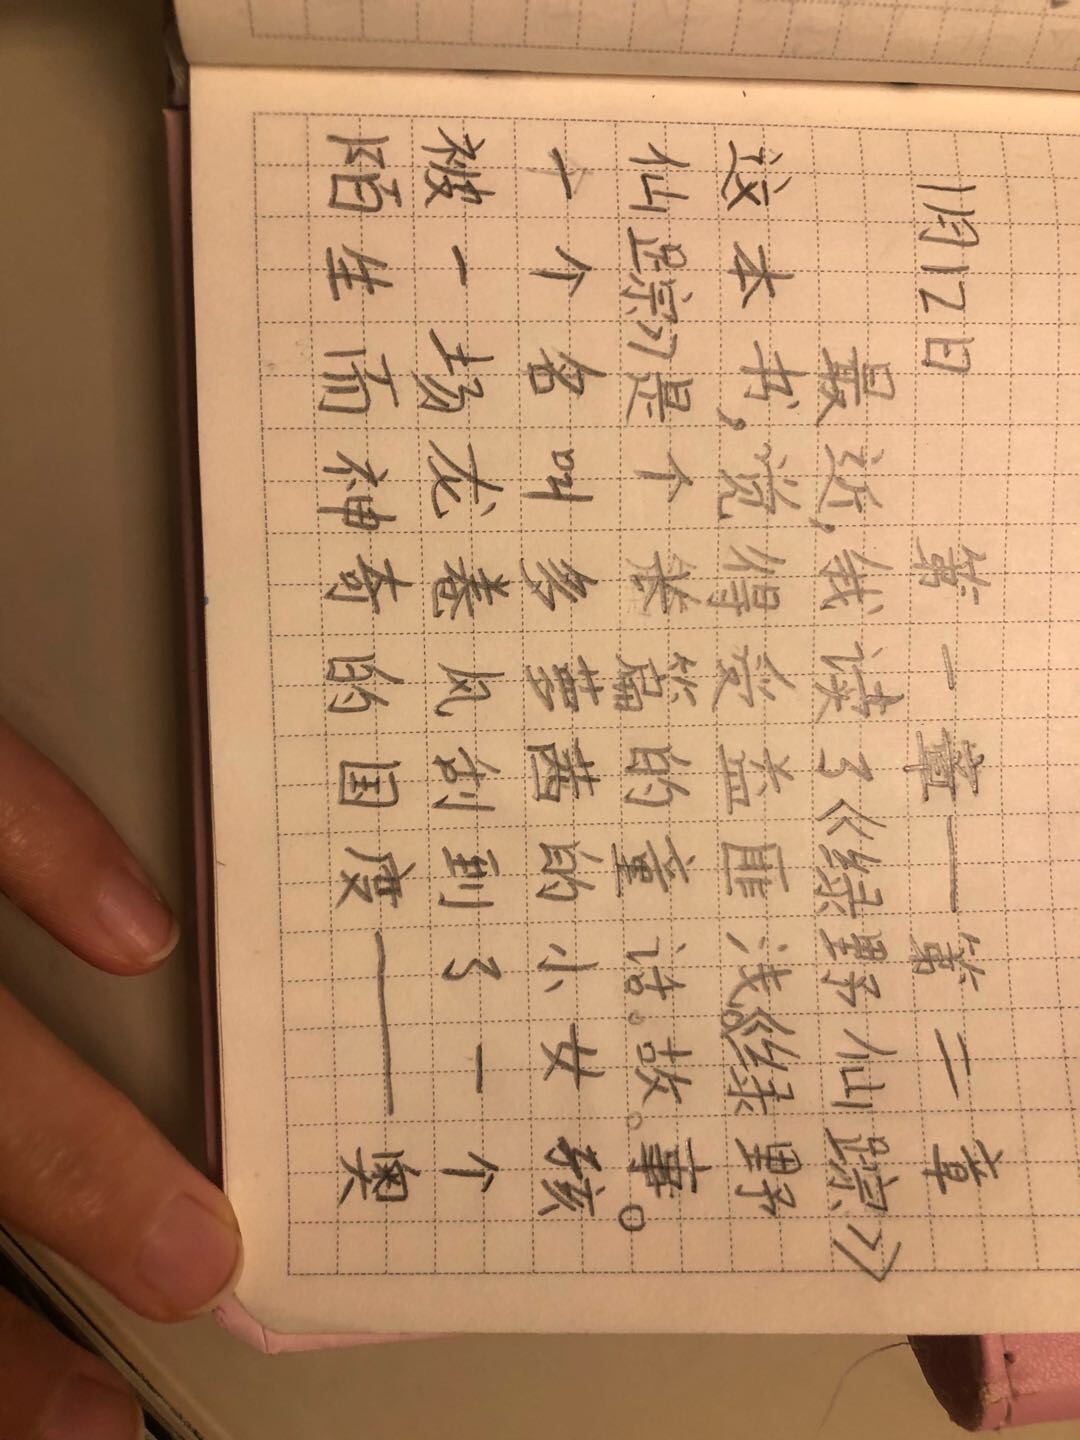 1月12日 第一章——第二章
最近,我读了《绿野仙踪》
这本书,觉得受益匪浅。《绿野
仙踪》是个篇的童话。故。事。
一个名叫多萝茜的小女孩
被一场龙卷风刮到了一个
陌生而神奇的国度——奥